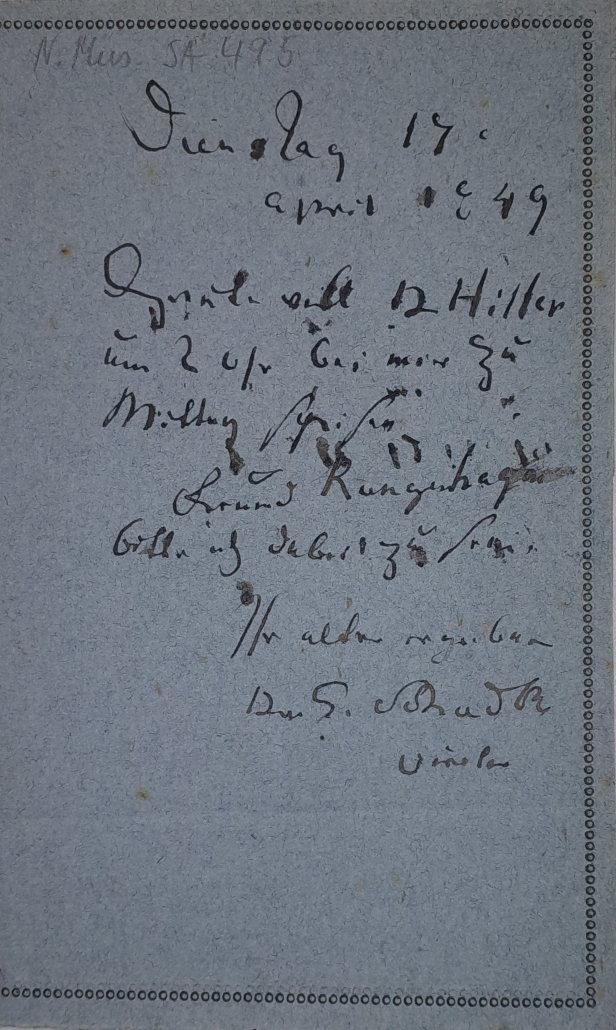 N. Mus. SA 495
Dienstag 17.
April 1849
will Dr Hiller
um 2 Uhr bei mir zu
Mittag speisen
Freund Rungenhagen
bitte ich dabei zu sein.
Ihr alter ergebener
Dr. G. Schadow